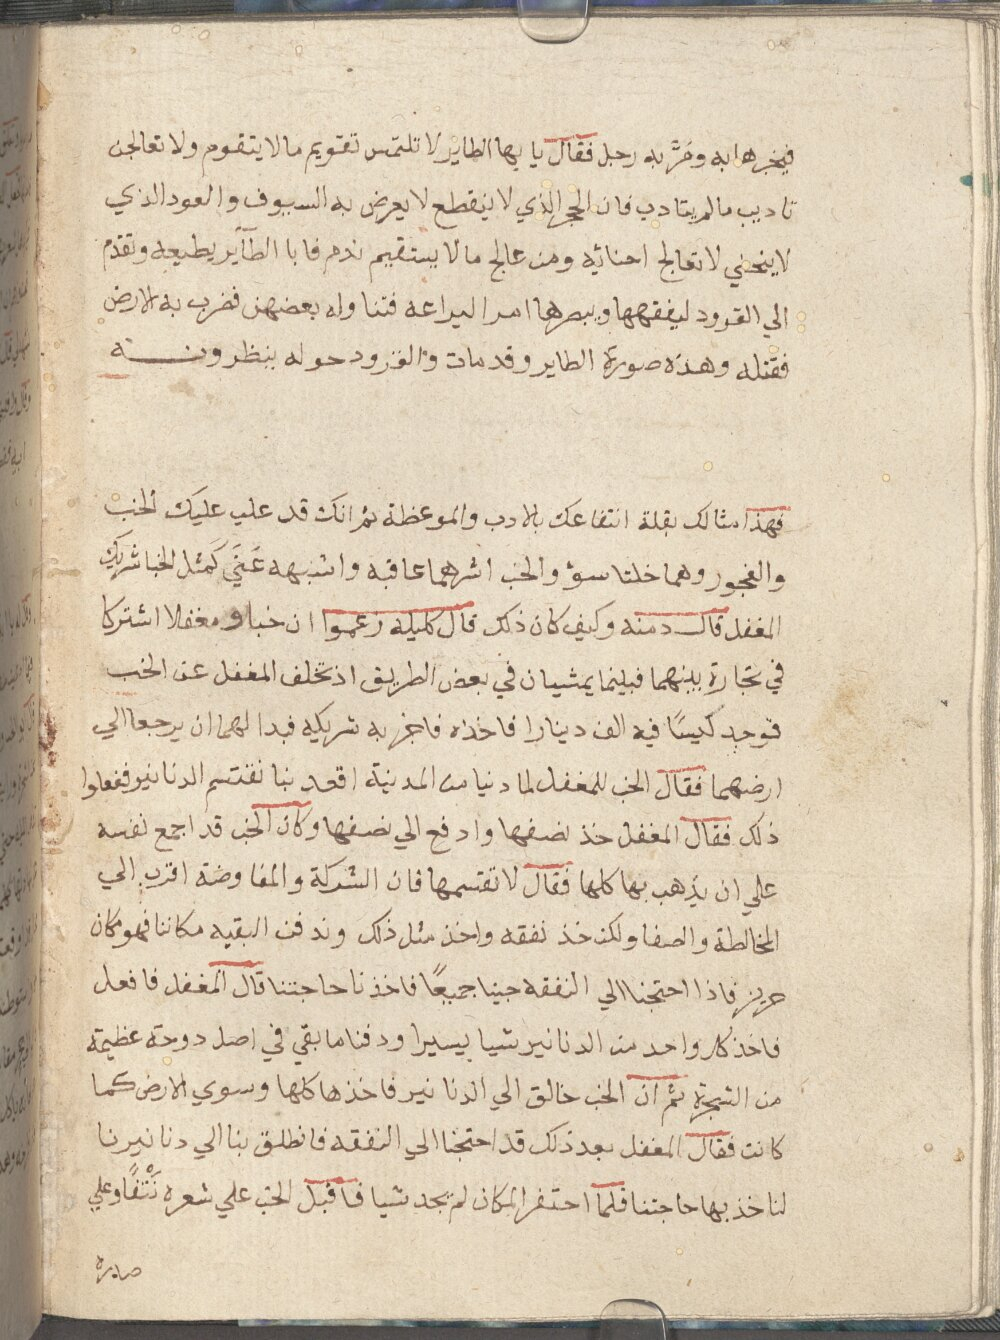 فيخبرها به ومَرَّ به رجل فقال يا يها الطاير لا تلتمس تقويم مالا يتقوم ولا تعالجن
تاديب مالم يتادب فان الحجر الذي لا ينقطع لا يعرض به السيوف والعود الذي
لا ينحني لا تعالج احنائه ومن عالج مالا يستقيم ندم فابا الطآير يطيعه وتقدم
الي القرود ليفقهها ويبصرها امر اليراعه فتناوله بعضهن فضرب به الارض
فقتله وهذه صورة الطاير وقد مات والقرود حوله ينظرونـــــه
فهذا مثالك بقلة انتفاعك بالادب والموعظة ثم انك قد غلب عليك الخب
والفجور وهما خلتا سوء والخب اشرهما عاقبه واشبهه عَنَي كمَثل الخبا شريك
المغفل قال دمنه وكيف كان ذلك قال كليله زعموا ان خبا و مغفلا اشتركا
في تجارة بينهما فبينما يمشيان في بعض الطريق اذ تخلف المغفل عن الخب
فوجد كيسًا فيه الف دينارا فاخذه فاخبر به شريكه فبدا لهما ان يرجعا الي
ارضهما فقال الخب للمغفل لما دنيا من المدينة اقعد بنا نقتسم الدنانير ففعلوا
ذلك فقال المغفل خذ نصفها وادفع الي نصفها وكان الخب قد اجمع نفسه
علي ان يذهب بها كلها فقال لا نقتسمها فان الشركة والمفاوضة اقرب الي
المخالطة والصفا ولكن خذ نفقه واخذ مثل ذلك وندفن البقيه مكاننا فهو مكان
حريز فاذا احتجنا الي النفقه جينا جميعًا فاخذنا حاجتنا قال المغفل فافعل
فاخذ كل واحد من الدنانير شيا يسيرا ودفنا ما بقي في اصل دوحة عظيمة
من الشجرة ثم ان الخب خالق الي الدنانير فاخذها كلها وسوي الارض كما
كانت فقال المغفل بعد ذلك قد احتجنا الي النفقه فانطلق بنا الي دنانيرنا
لناخذ بها حاجتنا فلما احتفر المكان لم يجد شيا فاقبل الخب علي شعره نَتْفًا وعلي
صدره